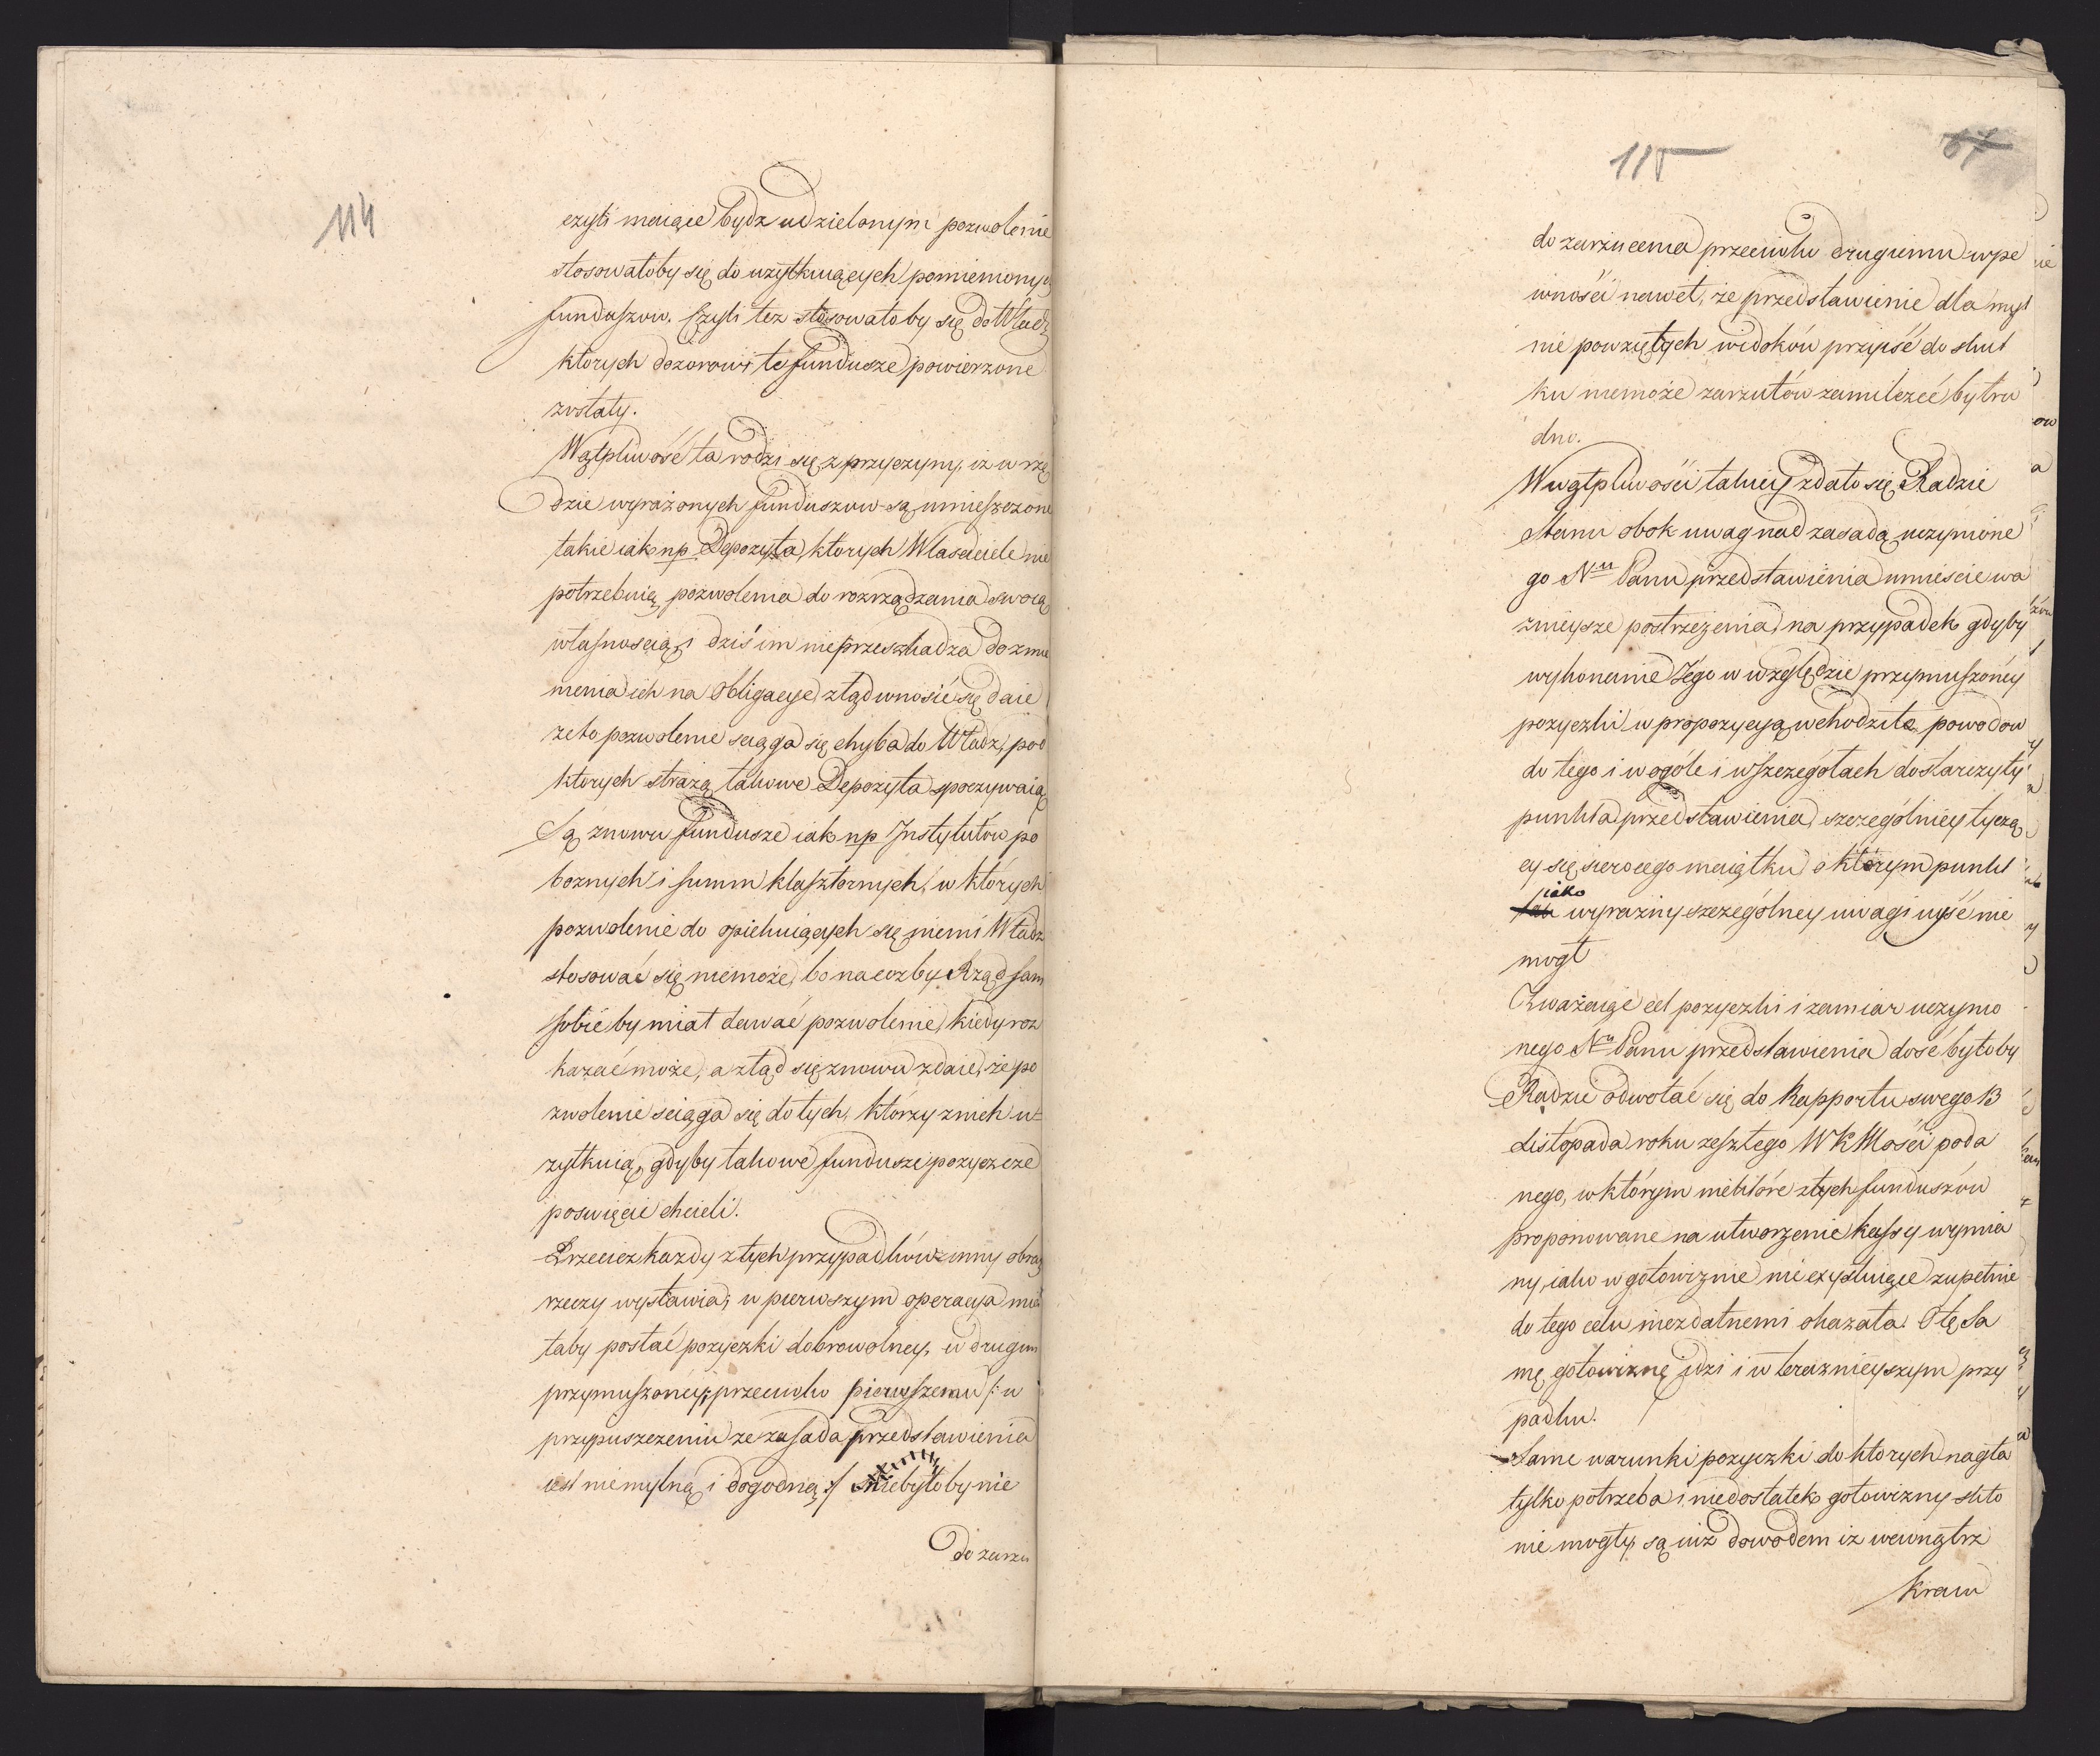 114
czyli maiące bydz udzielonym pozwolenie
stosowałoby się do uzytkuiących pomienionych
funduszow. Czyli tez stosowałoby się do Władz
ktorych dozorowi te fundusze powierzone
zostały.
Wątpliwość ta rodzi się z przyczyny, iz w rzę
dzie wyrażonych funduszow są umieszczone
takie iak np Depozyta, ktorych Własciciele nie
potrzebuią pozwolenia do rozrządzania swoią
własnoscią i dziś im nieprzeszkadza do zmie
nienia ich na Obligacye, ztąd wnosić się daie
ze to pozwolenie sciąga się chyba do Władz, pod
ktorych strażą takowe Depozyta spoczywaią
Są znowu fundusze iak np Instytutów po
boznych i summ klasztornych, w których
pozwolenie do opiekuiących się niemi Władz
stosować się niemoże, bo na cozby Rząd sam
sobie by miał dawać pozwolenie, kiedy roz
kazać może, a ztąd się znowu zdaie, że po
zwolenie sciąga się do tych, ktorzy z nich u=
zytkuią, gdyby takowe fundusze pozyczce
poswięcić chcieli.
Przeciez kazdy z tych przypadków inny obraz
rzeczy wystawia; w pierwszym operacya mia
łaby postać pozyczki dobrowolney, w drugim
przymuszoney; przeciwko pierwszemu /: w
przypuszczeniu ze zasada przedstawienia
iest niemylną i dogodną :/ niebyłoby nic
do zarzu
115
67
do zarzucenia przeciwko drugiemu w pe
wności nawet, że przedstawienie dla myl
nie powziętych widoków przyiść do skut
ku niemoże zarzutów zamilczeć by tru
dno.
W wątpliwości takiey zdało się Radzie
Stanu obok uwag nad zasadą uczynione
go Nu Panu przedstawienia umiescić wa
znieysze postrzeżenia, na przypadek gdyby
wykonanie Jego w względzie przymuszóney
pozyczki w propozycyą wchodziło, powodow
do tego i w ogóle i w szczegółach dostarczyły
punkta przedstawienia, szczególniey tyczą
cy się sierocego maiątku o którym punkt
iako
wyrazny szczególney uwagi uyść nie
mogł
Zważaiąc cel pozyczki i zamiar uczynio
nego Nu Panu przedstawienia dość byłoby
Radzie odwołać się do Rapportu swego 13
Listopada roku zeszłego WKMości poda
nego, w którym niektóre z tych funduszów
proponowane na utworzenie kassy wymia
ny, iako w gotowiznie nie exystuiące zupełnie
do tego celu niezdatnemi okazała. O tę Sa
mę gotowiznę idzi i w teraznieyszym przy
padku.
Same warunki pozyczki do ktorych nagła
tylko potrzeba i niedostatek gotowizny skło
nie mogły, są iuż dowodem iz wewnątrz
Kraiu